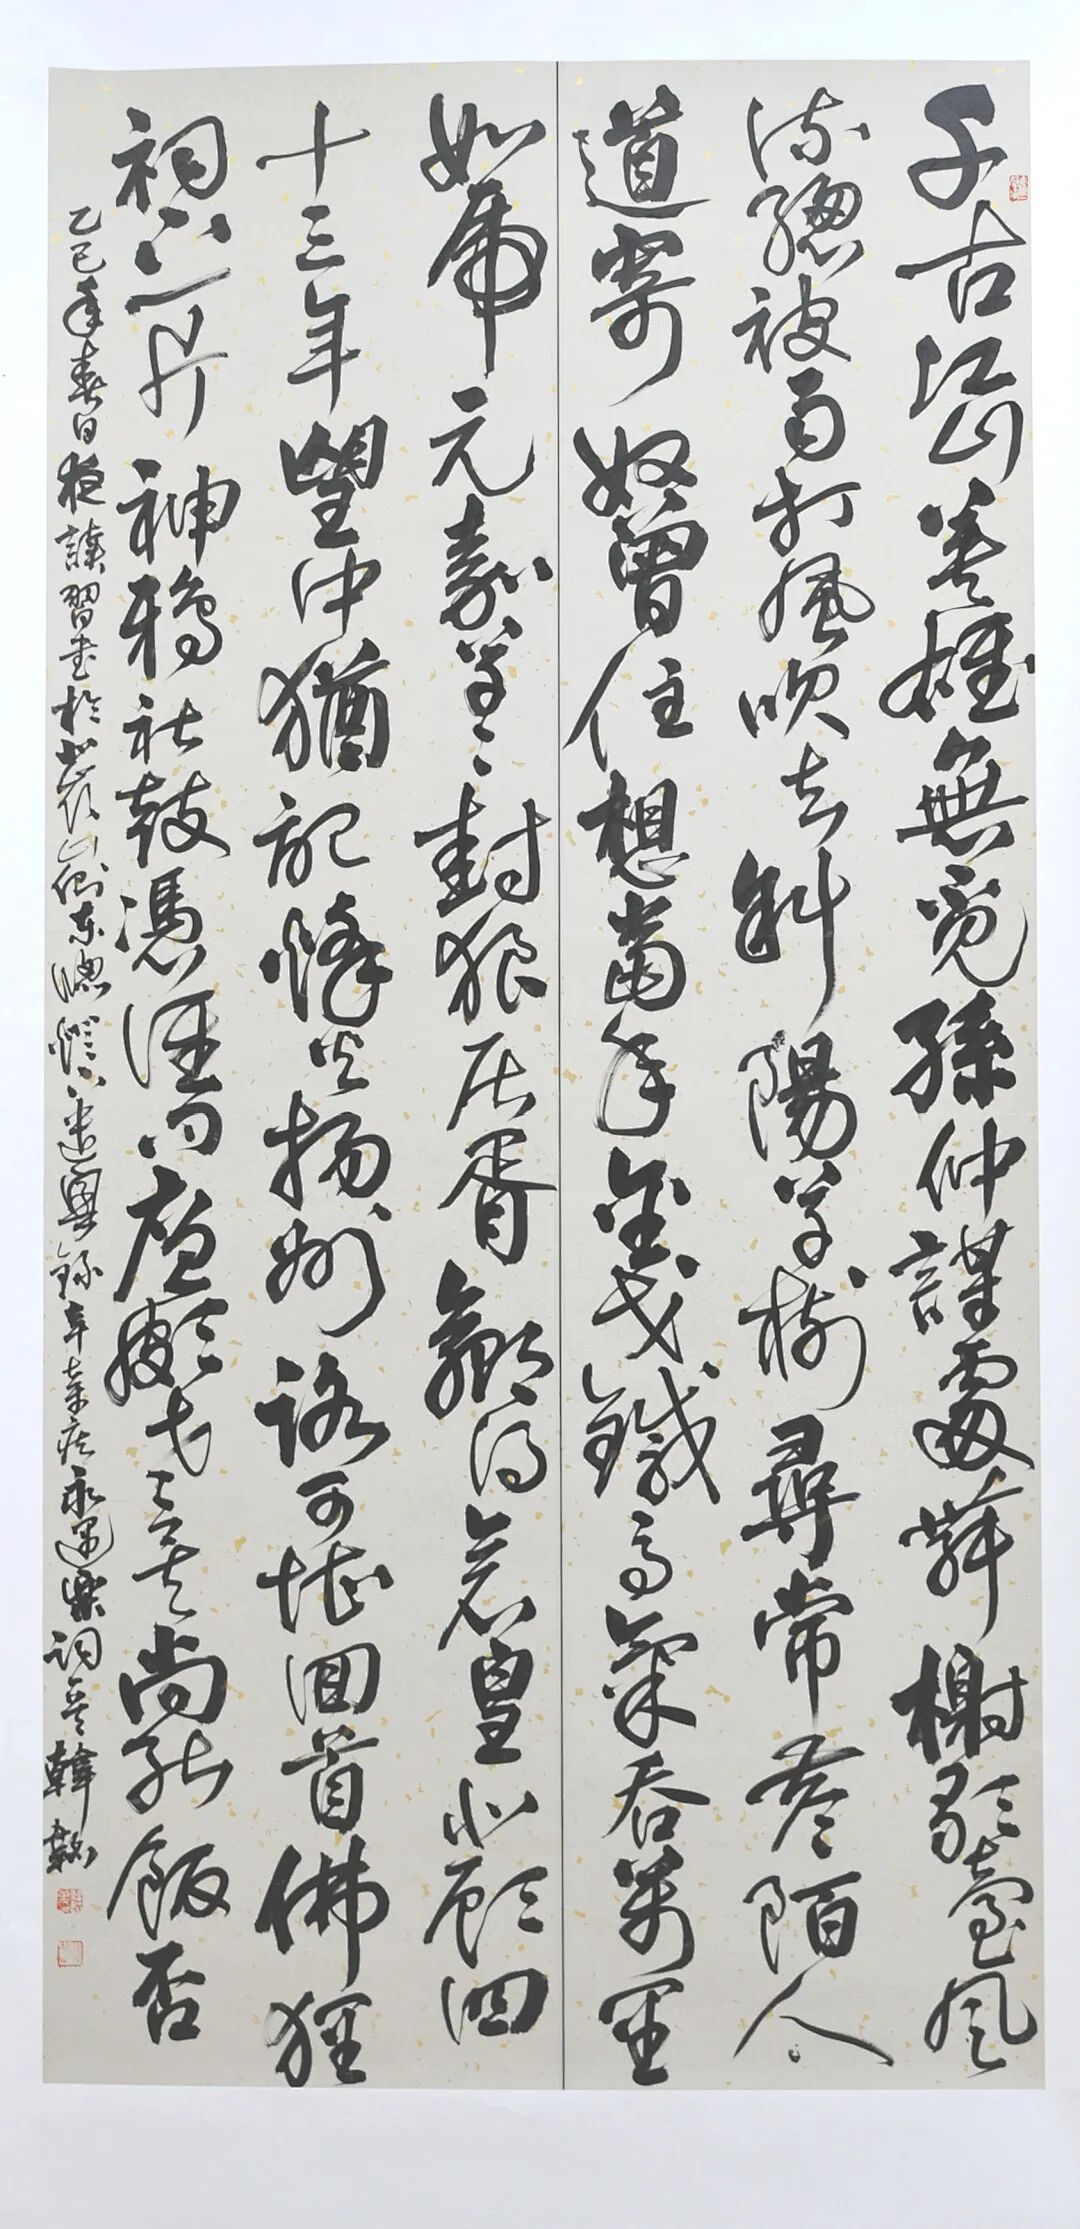 千古江山英雄無覓孫仲謀處舞榭歌臺風
流總被雨打風吹去斜陽草樹尋常巷陌人
道寄奴曾住想當年金戈鐵馬氣吞萬里
如虎元嘉草々封狼居胥贏得倉皇北顧四
十三年望中猶記烽火揚州路可堪回首佛狸
祠下一片神鴉社鼓憑誰問廉頗老矣尚能飯否
乙巳年春日夜讀習書於山側東窗燈下遣興錄辛棄疾永遇樂詞韓